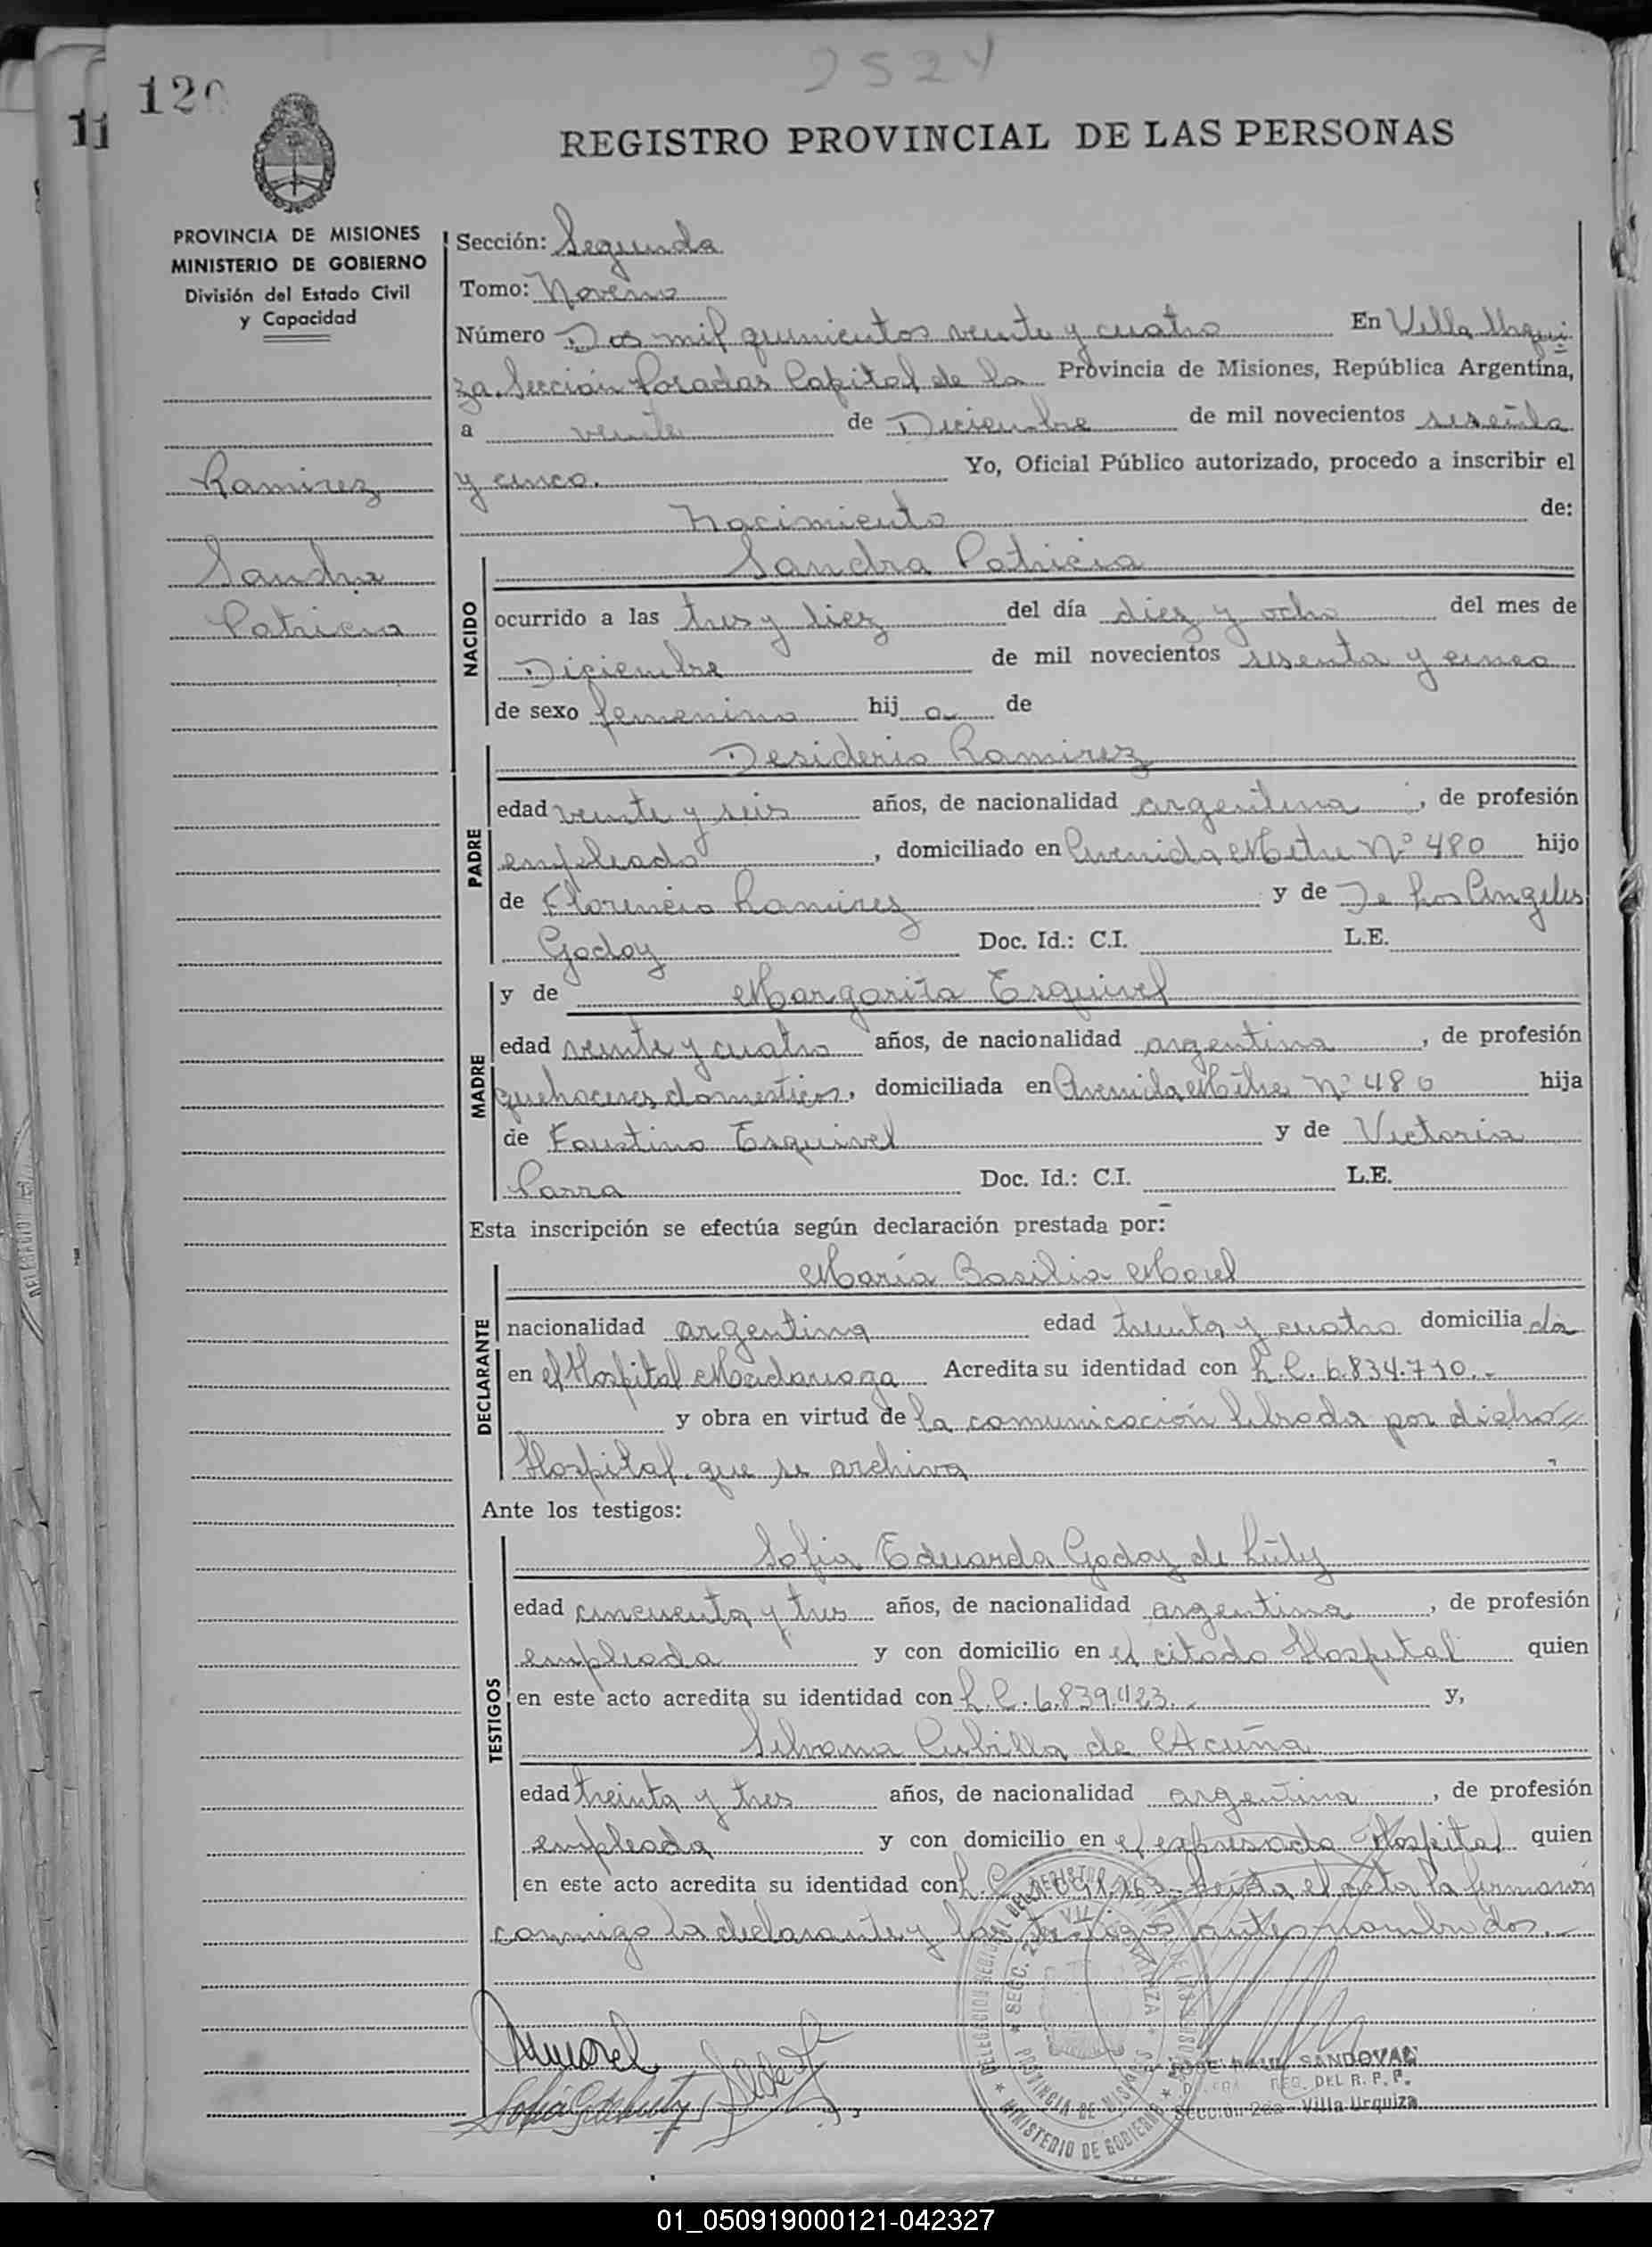 2524
120
11
REGISTRO PROVINCIAL DE LAS PERSONAS
PROVINCIA DE MISIONES
MINISTERIO DE GOBIERNO
División del Estado Civil
y Capacidad
Ramirez
Sandra
Patricia
Sección: Segunda
Tomo: Noveno
Número Dos mil quinientos veinte y cuatro En Villa Urqui
za, Sección Posadas Capital de la Provincia de Misiones, República Argentina,
a veinte de Diciembre de mil novecientos sesenta
y cinco. Yo, Oficial Público autorizado, procedo a inscribir el
nacimiento de:
NACIDO
Sandra Patricia
ocurrido a las tres y diez del día diez y ocho del mes de
Diciembre de mil novecientos sesenta y cinco
de sexo femenino hij a de
PADRE
Desiderio Ramirez
edad veinte y seis años, de nacionalidad argentina, de profesión
empleado, domiciliado en Avenida Mitre Nº 480 hijo
de Florencio Ramirez y de De Los Angeles
Godoy Doc. Id.: C.I. L.E.
MADRE
y de Margarita Esquivel
edad veinte y cuatro años, de nacionalidad argentina, de profesión
quehaceres domesticos, domiciliada en Avenida Mitre Nº 480 hija
de Faustino Esquivel y de Victoria
Parra Doc. Id.: C.I. L.E.
Esta inscripción se efectúa según declaración prestada por:
DECLARANTE
María Basilia Morel
nacionalidad argentina edad treinta y cuatro domiciliada
en el Hospital Madariaga Acredita su identidad con L.C. 6.834.710.-
y obra en virtud de la comunicación librada por dicho
Hospital, que se archiva
Ante los testigos:
TESTIGOS
Sofia Eduarda Godoy de
edad cincuenta y tres años, de nacionalidad argentina, de profesión
empleada y con domicilio en el citado Hospital quien
en este acto acredita su identidad con L.C. 6.839.423.- y,
Silvana Cubilla de Acuña
edad treinta y tres años, de nacionalidad argentina, de profesión
empleada y con domicilio en el expresado Hospital quien
en este acto acredita su identidad con L.C. Leída el acta la firmaron
conmigo la declarante y los testigos antes nombrados.-
SECC. 2
PROVINCIA DE MISIONES
MINISTERIO DE GOBIERNO
JOSE RAUL SANDOVAL
REG. DEL R. P. P.
Sección 2da - Villa Urquiza
01_050919000121-042327